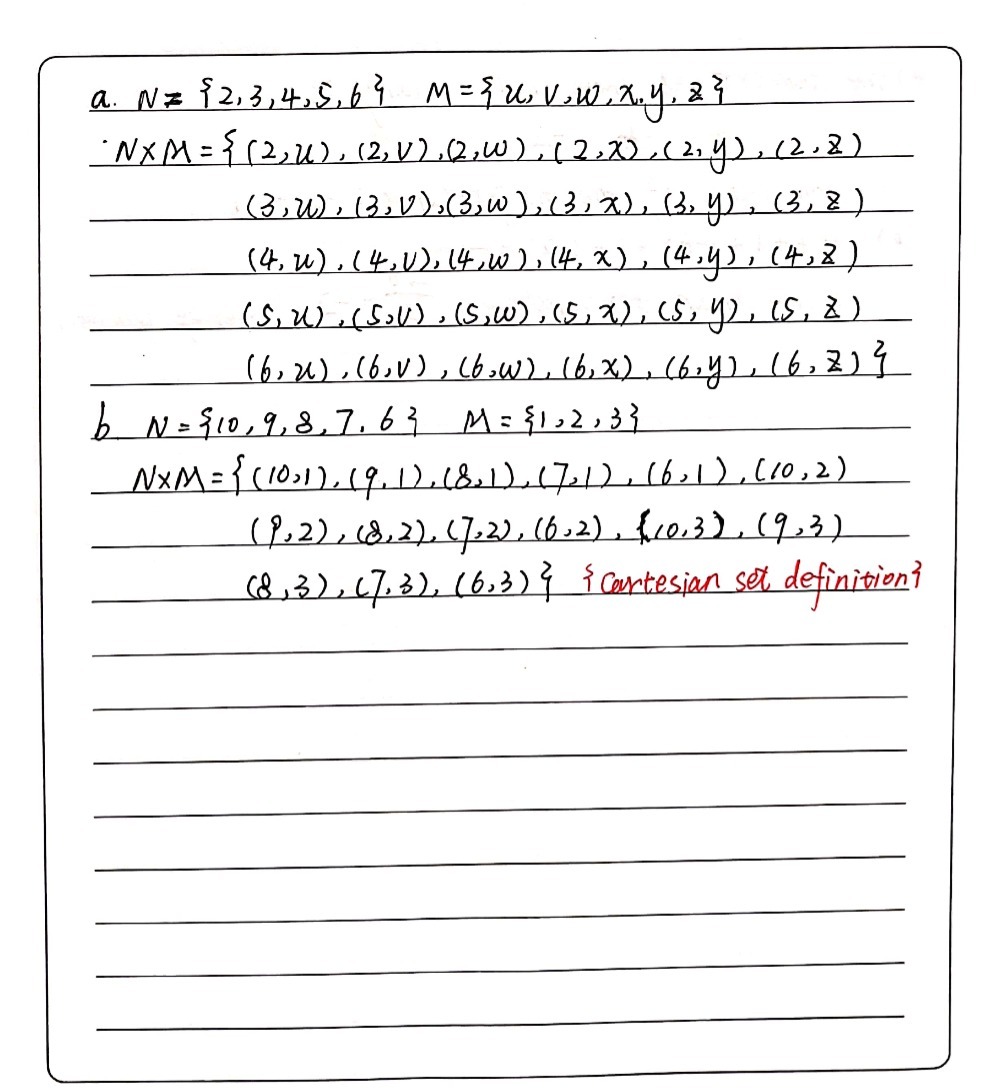 a. N = {2,3,4,5,6} M = {u, v, w, x, y, z}
N×M = {(2,u), (2,v), (2,w), (2,x), (2,y), (2,z)
(3,u), (3,v), (3,w), (3,x), (3,y), (3,z)
(4,u), (4,v), (4,w), (4,x), (4,y), (4,z)
(5,u), (5,v), (5,w), (5,x), (5,y), (5,z)
(6,u), (6,v), (6,w), (6,x), (6,y), (6,z)}
b N = {10, 9, 8, 7, 6} M = {1,2,3}
N×M = {(10,1), (9,1), (8,1), (7,1), (6,1), (10,2)
(9,2), (8,2), (7,2), (6,2), (10,3), (9,3)
(8,3), (7,3), (6,3)} {Cartesian set definition}